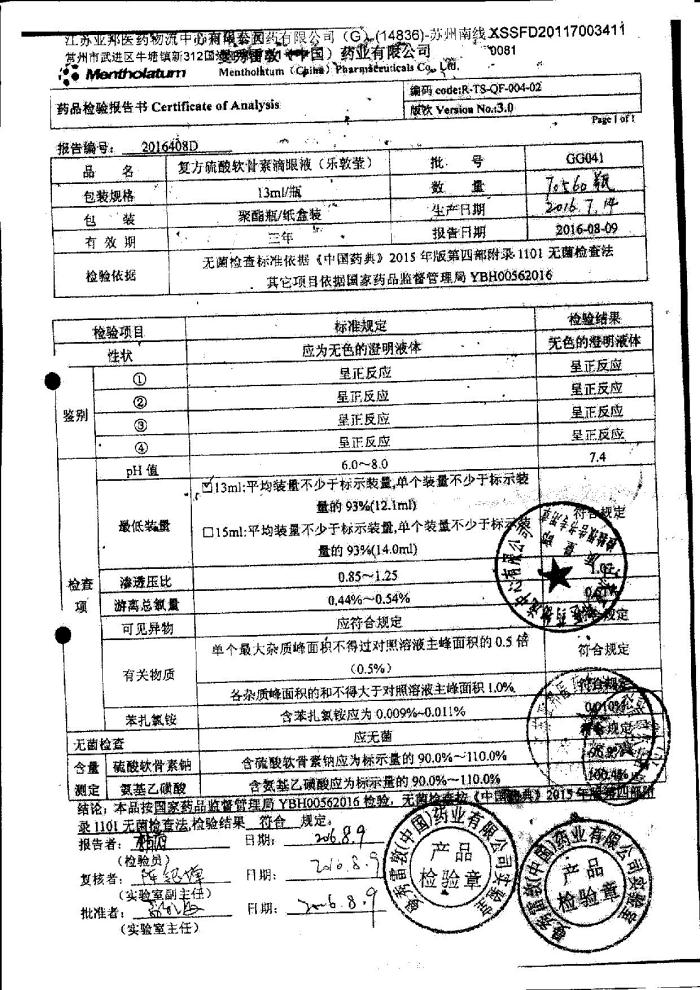 江苏亚邦医药物流中心有限公司 药有限公司(G) (14836)-苏州南线 XSSFD20117003411
常州市武进区牛塘镇新312国 曼秀雷敦(中国)药业有限公司 0081
Mentholatum Mentholatum (China) Pharmaceuticals Co., Ltd.
药品检验报告书 Certificate of Analysis
编码 code:R-TS-QF-004-02
版次 Version No.:3.0
Page 1 of 1
报告编号: 2016408D
品 名 复方硫酸软骨素滴眼液(乐敦莹) 批 号 GG041
包装规格 13ml/瓶 数 量 70560瓶
包 装 聚酯瓶/纸盒装 生产日期 2016.7.14
有 效 期 三年 报告日期 2016-08-09
检验依据 无菌检查标准依据《中国药典》2015 年版第四部附录 1101 无菌检查法
其它项目依据国家药品监督管理局 YBH00562016
检验项目 标准规定 检验结果
性状 应为无色的澄明液体 无色的澄明液体
鉴别 ① 呈正反应 呈正反应
② 呈正反应 呈正反应
③ 呈正反应 呈正反应
④ 呈正反应 呈正反应
检查项 pH 值 6.0~8.0 7.4
最低装量 ☑13ml:平均装量不少于标示装量,单个装量不少于标示装
量的 93%(12.1ml) 符合规定
□15ml:平均装量不少于标示装量,单个装量不少于标示装
量的 93%(14.0ml)
渗透压比 0.85~1.25
游离总氨量 0.44%~0.54%
可见异物 应符合规定 符合规定
有关物质 单个最大杂质峰面积不得过对照溶液主峰面积的 0.5 倍
(0.5%) 符合规定
各杂质峰面积的和不得大于对照溶液主峰面积 1.0% 符合规定
苯扎氯铵 含苯扎氯铵应为 0.009%~0.011% 0.010%
无菌检查 应无菌 符合规定
含量测定 硫酸软骨素钠 含硫酸软骨素钠应为标示量的 90.0%~110.0%
氨基乙磺酸 含氨基乙磺酸应为标示量的 90.0%~110.0% 100.4%
结论: 本品按国家药品监督管理局 YBH00562016 检验, 无菌检查按《中国药典》2015 年版第四部附
录 1101 无菌检查法,检验结果 符合 规定。
报告者: 日期: 2016.8.9
(检验员)
复核者: 日期: 2016.8.9
(实验室副主任)
批准者: 日期: 2016.8.9
(实验室主任)
曼秀雷敦(中国)药业有限公司实验室
产品
检验章
曼秀雷敦(中国)药业有限公司实验室
产品
检验章